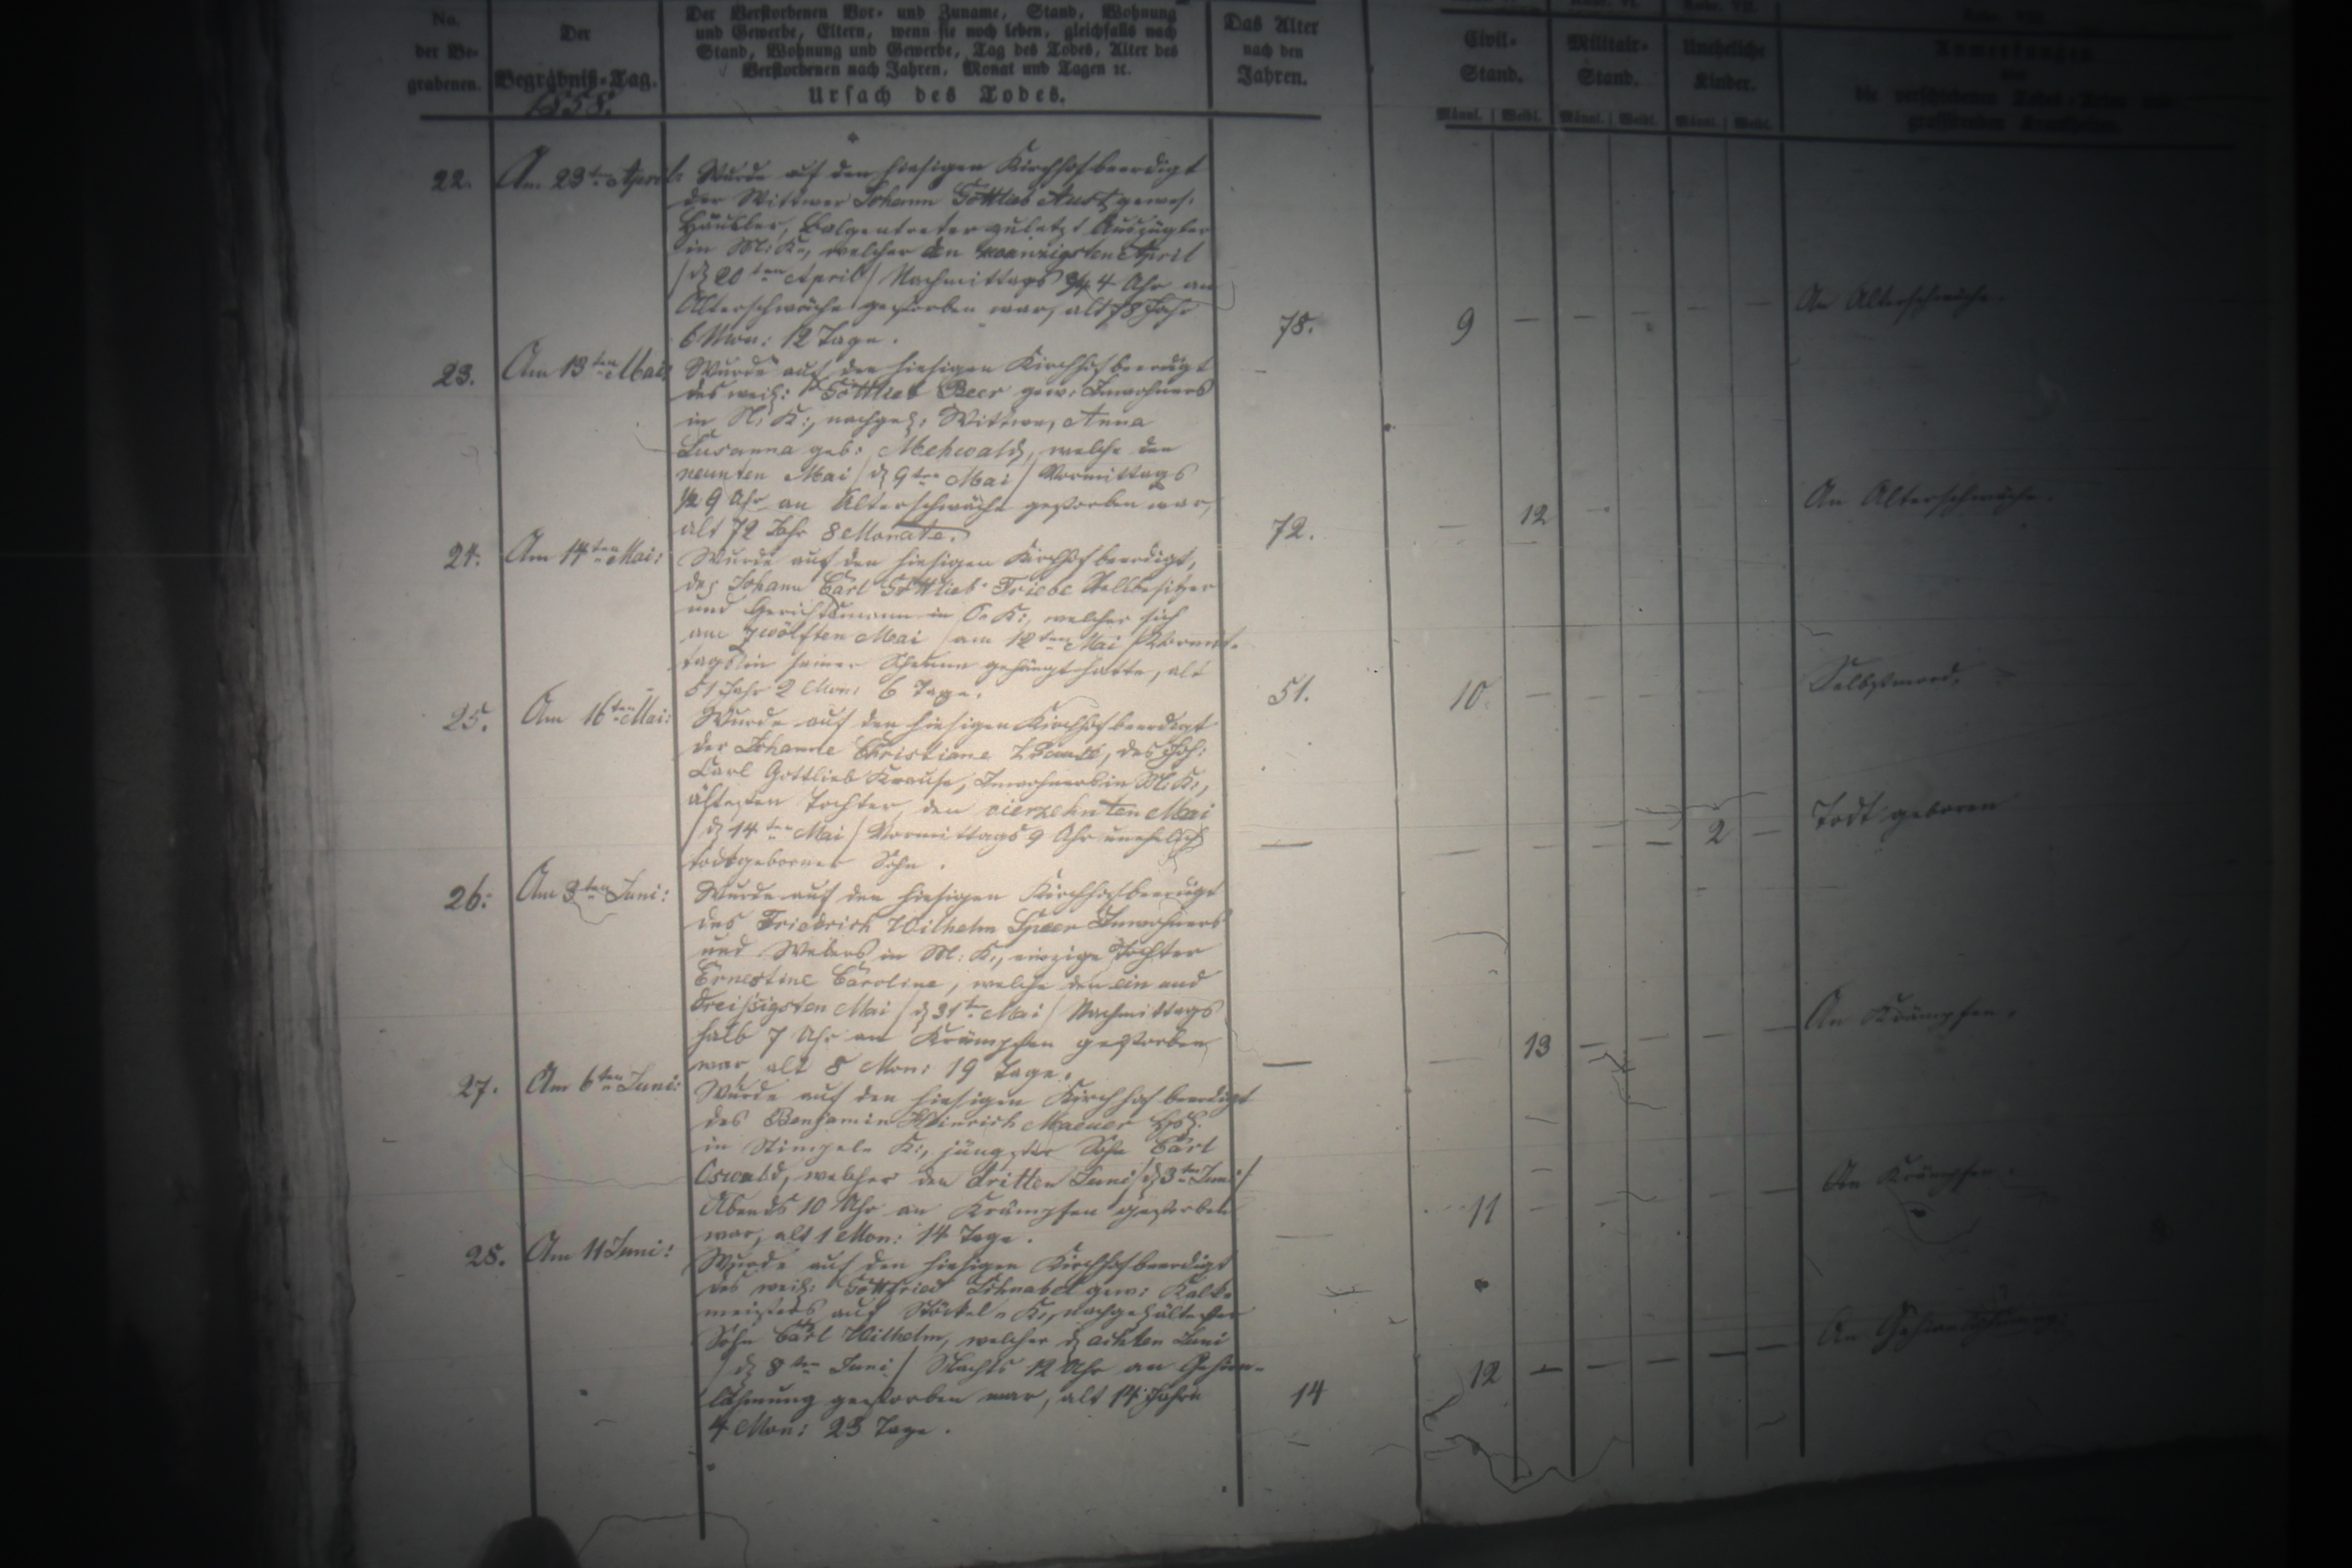 No.
der Be-
grabenen.
Der
Begräbniß-Tag.
1858.
Der Verstorbenen Vor- und Zuname, Stand, Wohnung
und Gewerbe, Eltern, wenn sie noch leben, gleichfalls nach
Stand, Wohnung und Gewerbe, Tag des Todes, Alter des
Verstorbenen nach Jahren, Monat und Tagen ꝛc.
Ursach des Todes.
Das Alter
nach den
Jahren.
Civil-
Stand.
Männl. Weibl.
Militair-
Stand.
Männl. Weibl.
Uneheliche
Kinder.
Männl. Weibl.
Anmerkungen
22. Am 23ten April:
Wurde auf den hiesigen Kirchhof beerdigt
der Wittwer Johann Gottlieb Aust gewes.
Häusler, Balgentreter zuletzt Auszügler
in M: K:, welcher den zwanzigsten April
/ d 20ten April / Nachmittags 3/4 4 Uhr an
Alterschwäche gestorben war, alt 78 Jahr
6 Mon: 12 Tage.
78. 9 — — — — — An Alterschwäche.
23. Am 13ten Mai:
Wurde auf den hiesigen Kirchhof beerdigt
des weil: Gottlieb Beer gew: Inwohners
in N: K:, nachgel: Wittwe, Anna
Susanna geb: Mehwald, welche den
neunten Mai / d 9ten Mai / Vormittags
1/2 9 Uhr an Alterschwäche gestorben war,
alt 72 Jahr 8 Monate.
72. — 12 — An Alterschwäche.
24. Am 14ten Mai:
Wurde auf den hiesigen Kirchhof beerdigt,
der Johann Carl Gottlieb Friebe Stellbesitzer
und Gerichtsmann in O: K:, welcher sich
am zwölften Mai / am 12ten Mai / Vormit-
tags in seiner Scheune gehängt hatte, alt
51 Jahr 2 Mon: 6 Tage.
51. 10. — — — — — Selbstmord.
25. Am 16ten Mai:
Wurde auf den hiesigen Kirchhof beerdigt
der Johanne Christiane Krause, des Joh:
Carl Gottlieb Krause, Inwohners in M: K:,
ältesten Tochter, den vierzehnten Mai
/ d 14ten Mai / Vormittags 9 Uhr unehelich
todtgeborner Sohn.
— — — — — 2 — Todt geboren
26: Am 3ten Juni:
Wurde auf den hiesigen Kirchhof beerdigt
des Friedrich Wilhelm Speer Inwohners
und Webers in M: K:, einzige Tochter
Ernestine Caroline, welche den ein und
dreißigsten Mai / d 31ten Mai / Nachmittags
halb 7 Uhr an Krämpfen gestorben
war, alt 8 Mon: 19 Tage.
— — 13 — — — — An Krämpfen.
27. Am 6ten Juni:
Wurde auf den hiesigen Kirchhof beerdigt
des Benjamin Heinrich
in K:, jüngster Sohn Carl
Oswald, welcher den dritten Juni / d 3ten Juni /
Abends 10 Uhr an Krämpfen gestorben
war, alt 1 Mon: 14 Tage.
— 11 — — — — — An Krämpfen.
28. Am 11 Juni:
Wurde auf den hiesigen Kirchhof beerdigt
des weil: Gottfried Schnabel gew: Kalk-
meisters auf Stöckel-K:, nachgel ältester
Sohn Carl Wilhelm, welcher d achten Juni
/ d 8ten Juni / Nachts 12 Uhr an Gehirn-
lähmung gestorben war, alt 14 Jahre
4 Mon: 23 Tage.
14 12 — — — — — An Gehirnlähmung.